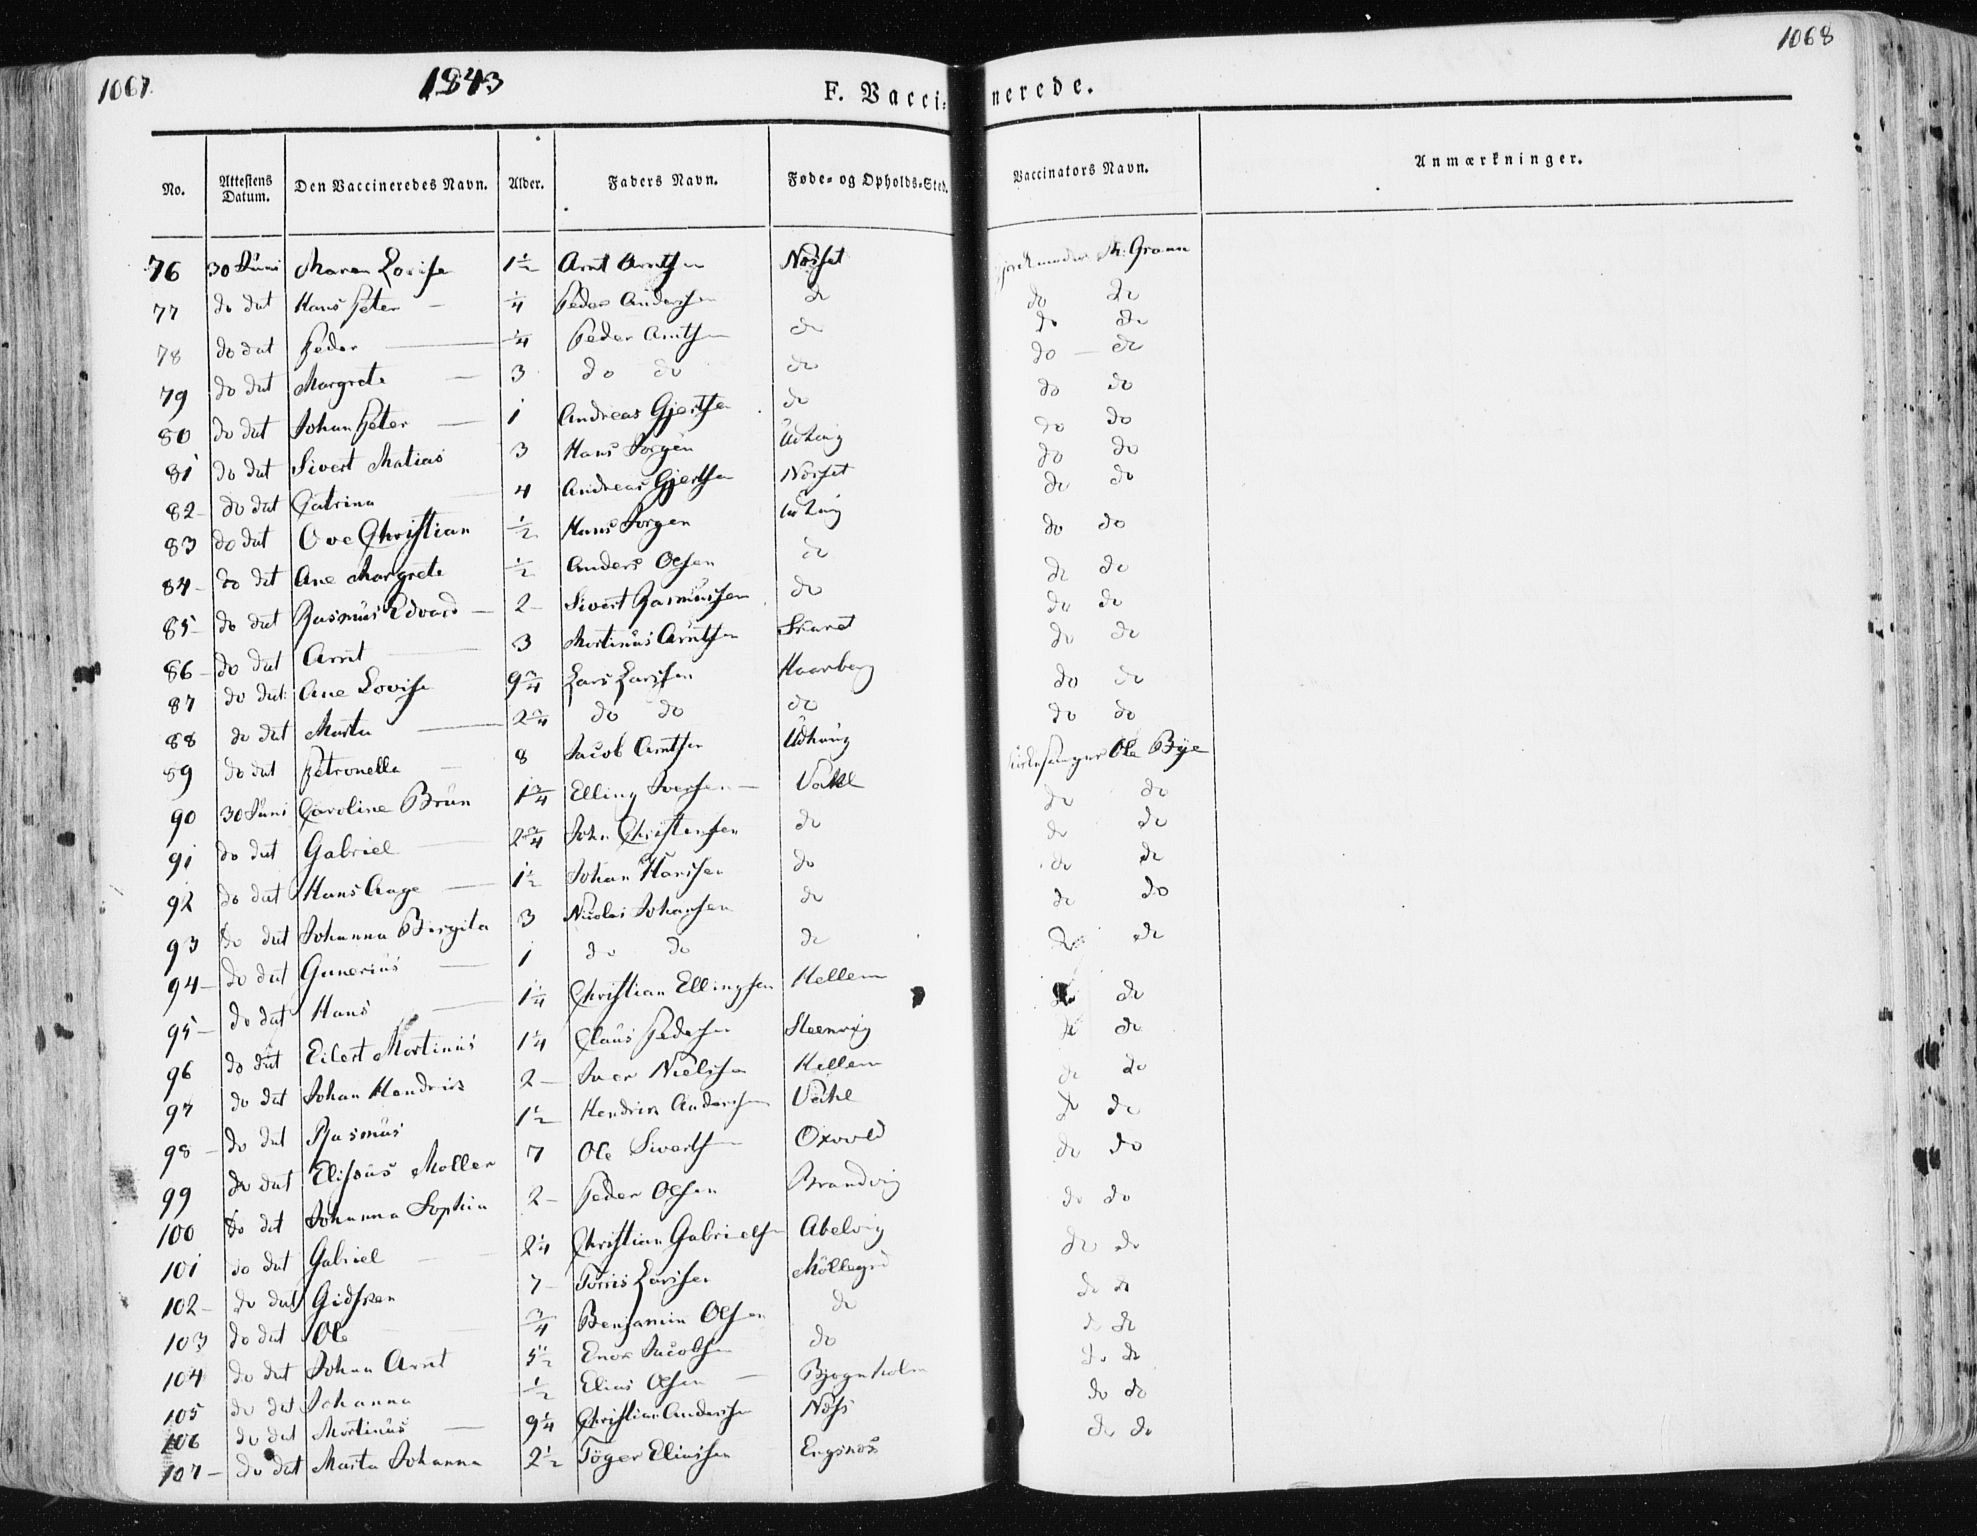 1067. 1843 F. Vaccinerede. 1068
No. Attestens Datum. Den Vaccineredes Navn. Alder. Faders Navn. Føde- og Opholds-Sted. Vaccinators Navn. Anmærkninger.
76 30 Juni Maren Lovise 1 1/2 Arnt Arntsen Norset M: Graan
77 do dat Hans Peter — 1/4 Peder Andersen do do do
78 do dat Peder — 1/4 Peder Arntsen do do do
79 do dat Margrete — 3 do do do do — do
80 do dat Johan Peter — 1 Andreas Gjertsen do do do
81 do dat Sivert Matias 3 Hans Jørgen Udhaug do do
82 - do dat Catrina 4 Andreas Gjertsen Norset do do
83 do dat Ove Christian 1/2 Hans Jørgen Udhaug do do
84 - do dat Ane Margrete 1/2 Anders Olsen do do do
85 - do dat Rasmus Edvard — 2 - Sivert Rasmussen do do do
86 - do dat Arnt — 3 Mortinus Arntsen do do
87 do dat: Ane Lovise 9 3/4 Lars Larssen Haarberg do do
88 do dat Marta — 2 3/4 do do do do do
89 do dat Petronella — 8 Jacob Arntsen Udhaug do do
90 30 Juni Caroline Brun 1 3/4 Elling Iversen — Ole Bye
91 do dat Gabriel — 2 3/4 John Christensen do do do
92 do dat Hans Aage — 1 1/2 Johan Hansen do do do
93 do dat Johanna Birgita 3 Nicolai Johansen do do do
94 - do dat Gunerius — 1 do do do do do
95 - do dat Hans — 1 1/4 Christian Ellingsen Hellem do do
96 do dat Eilert Mortinus 1 1/4 Claus Pedersen Steenvig do do
97 do dat Johan Hendrick 2 — Iver Nielsen Hellem do do
98 - do dat Rasmus 1 1/2 Hendrick Andersen do do
99 do dat Elisæus Møller 7 Ole Sivertsen Oxvold do do
100 do dat Johanna Sophia 2 - Peder Olsen Brandvig do do
101 do dat Gabriel — 2 1/4 Christian Gabrielsen Abelvig do do
102 - do dat Gidsken 7 - Torris Larsen do do
103 do dat Ole — 3/4 Benjamin Olsen do do do
104 do dat Johan Arnt 5 1/2 Enok Jacobsen do do do
105 do dat Johanna 1/2 Elias Olsen — Bjøgnholm do do
106 do dat Mortinus — 9 1/4 Christian Andersen do do
107 - do dat Marta Johanna 2 1/2 Tøger Eliassen do do